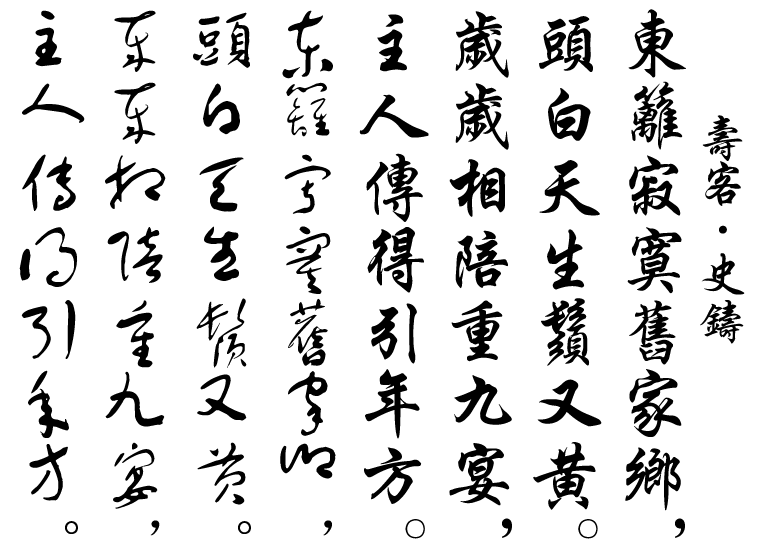 壽客·史鑄
東籬寂寞舊家鄉，
頭白天生鬚又黃。
歲歲相陪重九宴，
主人傳得引年方。
東籬寂寞舊家鄉，
頭白天生鬚又黃。
歲歲相陪重九宴，
主人傳得引年方。